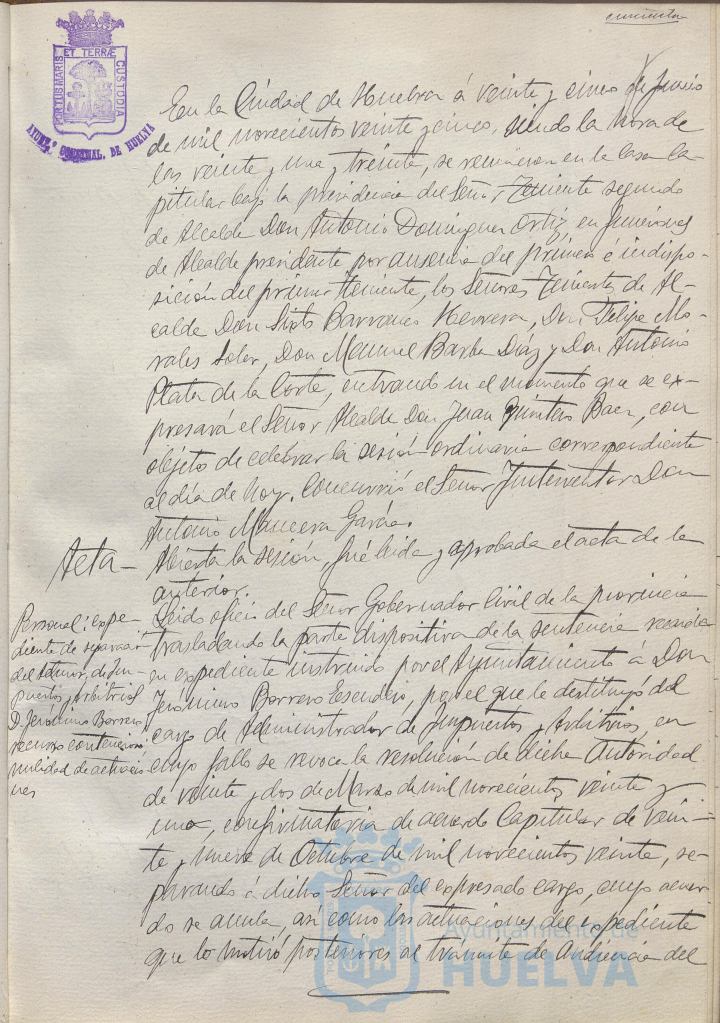 cincuenta
PORTUS MARIS ET TERRÆ CUSTODIA
AYUNT.º DE HUELVA
En la Ciudad de Huelva á veinte y cinco de Junio
de mil novecientos veinte y cinco, siendo la hora de
las veinte y una y treinta, se reunieron en la Casa Ca-
pitular bajo la presidencia del Señor Teniente segundo
de Alcalde Don Antonio Dominguez Ortiz, en funciones
de Alcalde presidente por ausencia del primero é indispo-
sición del primer Teniente, los Señores Tenientes de Al-
calde Don Sixto Barranco Herrera, Don Felipe Mo-
rales Soler, Don Manuel Barba Diaz y Don Antonio
Plata de la Corte, entrando en el momento que se ex-
presará el Señor Alcalde Don Juan Quintero Baez, con
objeto de celebrar la sesión ordinaria correspondiente
al día de hoy. Concurrió el Señor Interventor Don
Antonio Mancera García.
Acta-
Abierta la sesión, fué leida y aprobada el acta de la
anterior.
Personal: expe-
diente de separación
del Admor. de Im-
puestos y arbitrios
D. Jeronimo Borrero
recurso contencioso,
nulidad de actuacio
nes
Leido oficio del Señor Gobernador Civil de la provincia
trasladando la parte dispositiva de la sentencia recaida
en expediente instruido por el Ayuntamiento á Don
Jerónimo Borrero Escudero, por el que le destituyó del
cargo de Administrador de Impuestos y Arbitrios, en
cuyo fallo se revoca la resolución de dicha Autoridad
de veinte y dos de Marzo de mil novecientos veinte y
uno, confirmatoria de acuerdo Capitular de vein-
te y nueve de Octubre de mil novecientos veinte, se-
parando á dicho Señor del expresado cargo, cuyo acuer-
do se anula, así como las actuaciones del expediente
que lo motivó posteriores al trámite de Audiencia del
Ayuntamiento de
HUELVA